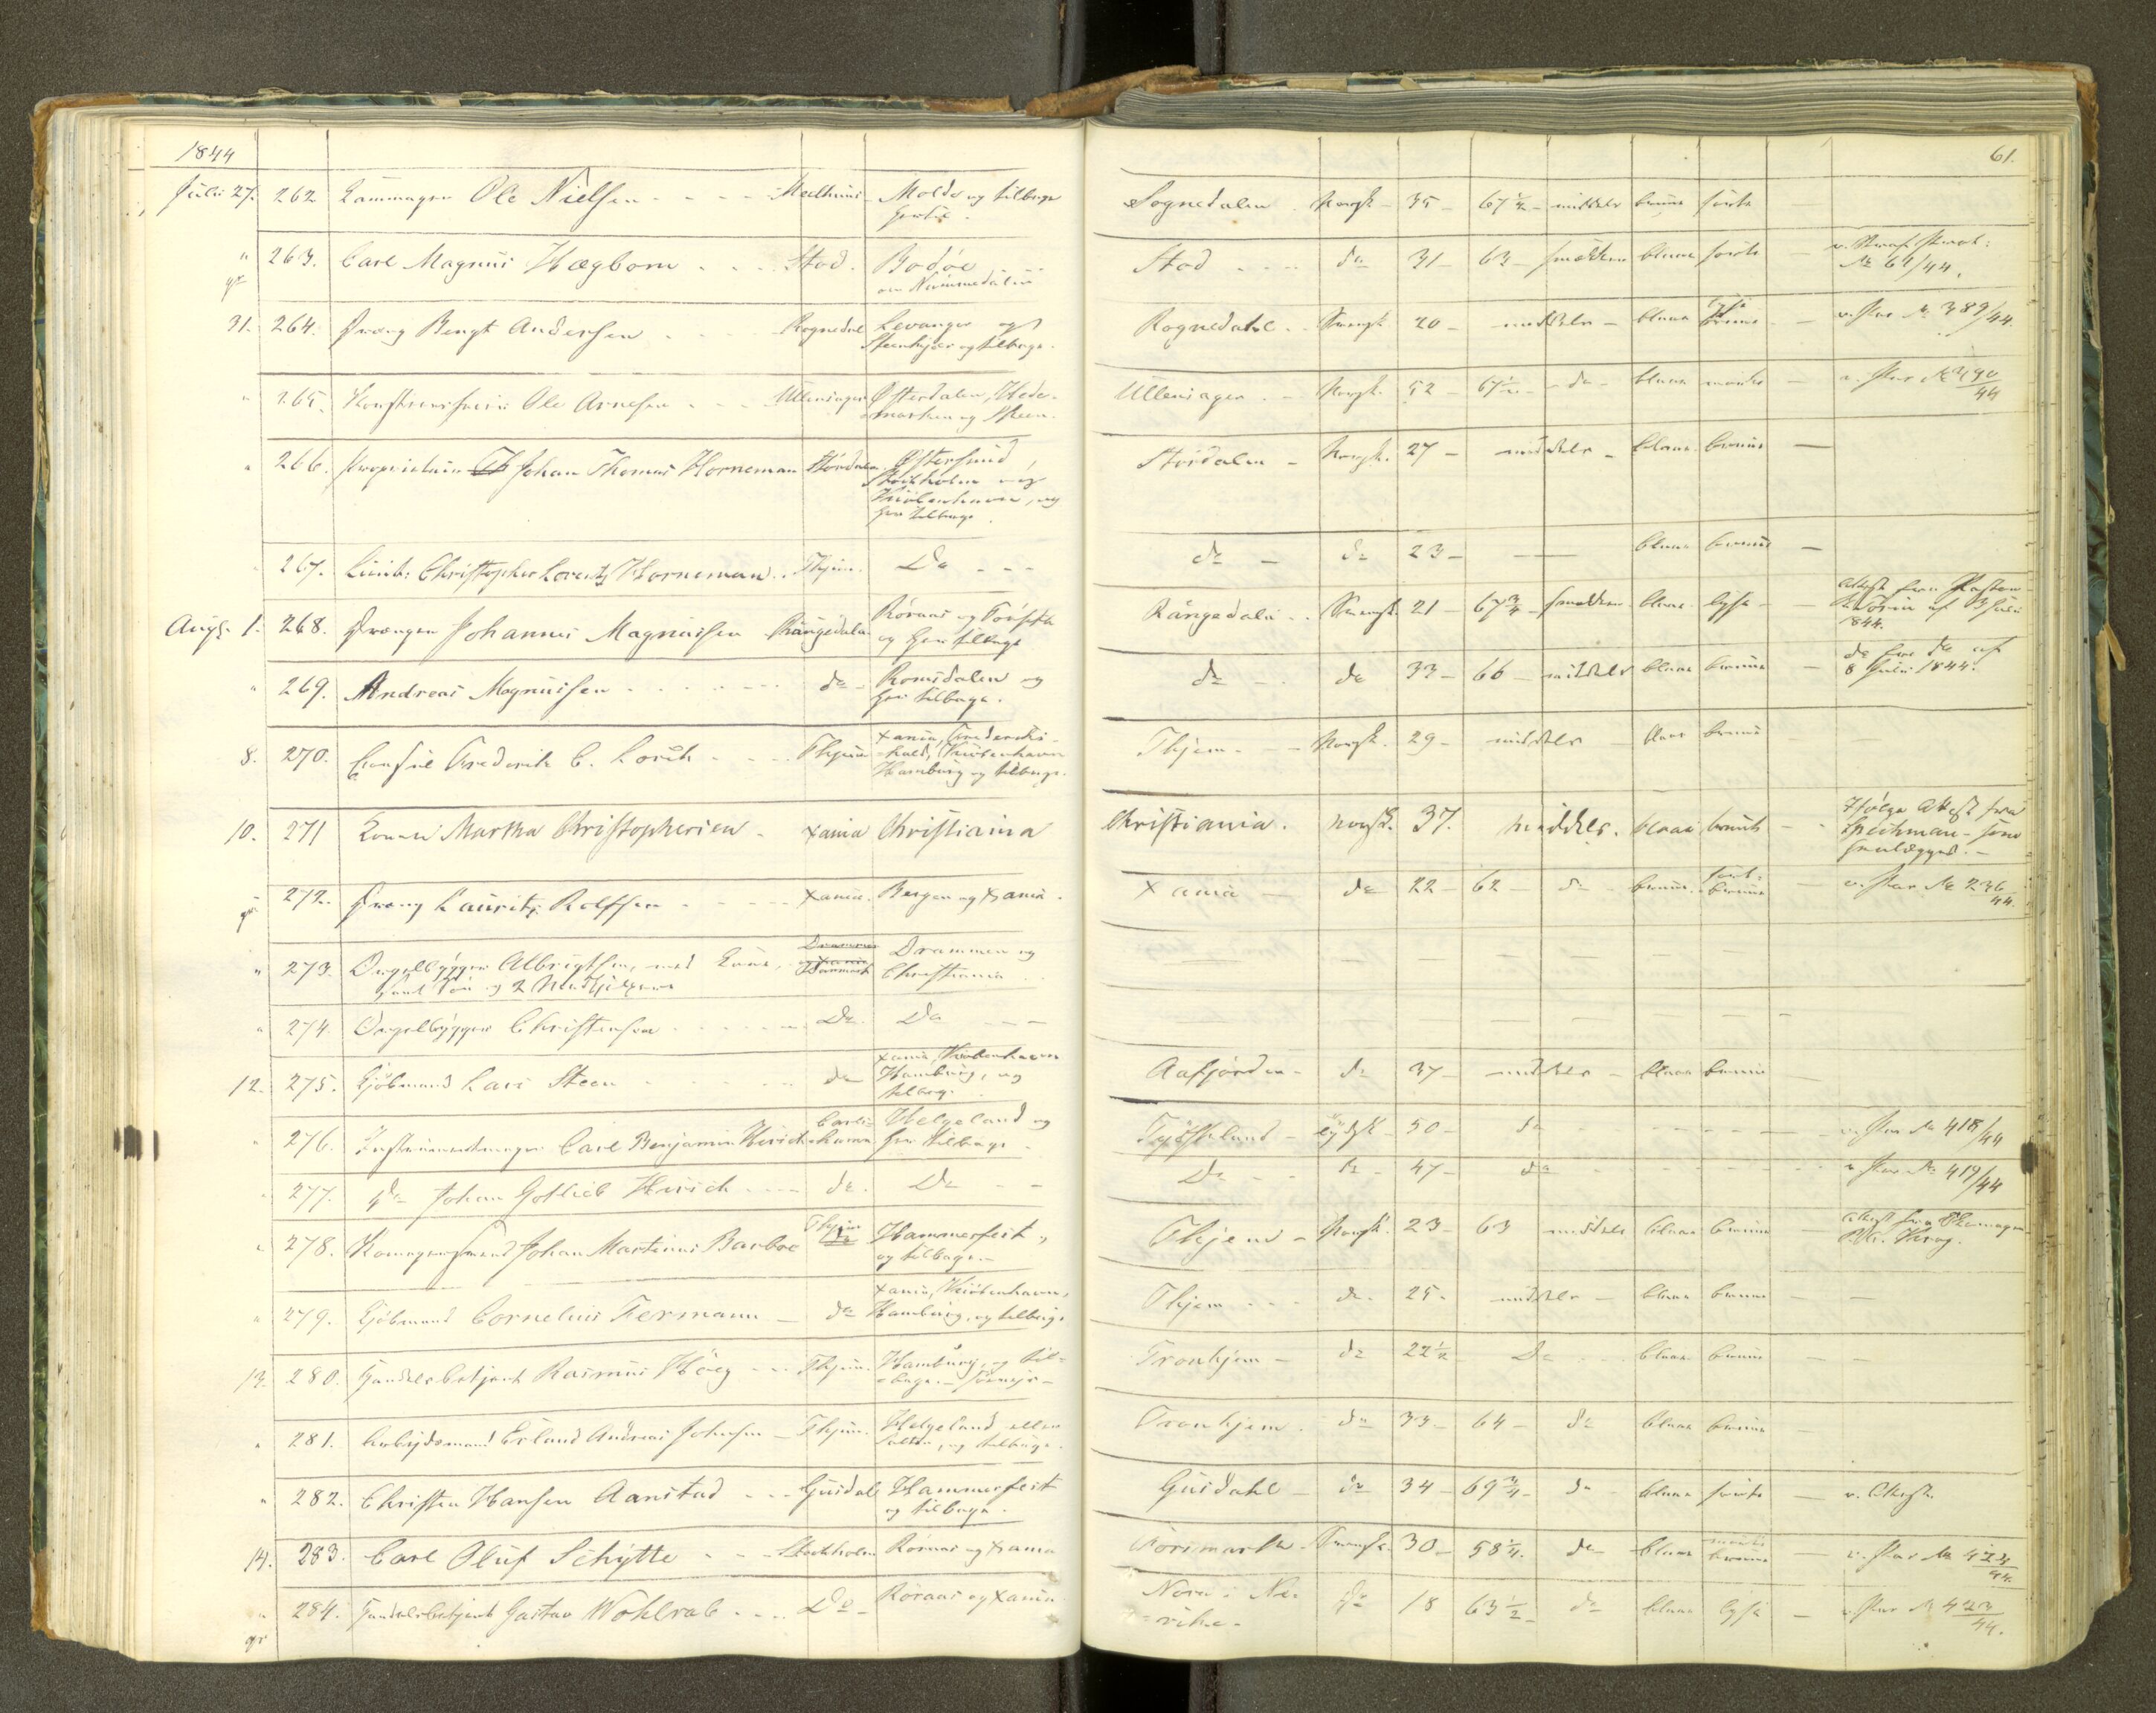 1844
61.
Juli 27. 262 Ole Nielsen - - - - Melhuus Molde og tilbage
Sognedalen Norsk - 35 - 67 1/2 - middels bruune sorte
" 263. Carl Magnus Hægbom - - - Stod. Bodøe
om Nummedalen
Stod - - - do 31 - 63 - smækker blaae sorte -
No 61/44.
31. 264. Dreng Bengt Andersen - - - Rognedal Levanger og
Steenkjær og tilbage.
Rognedahl - - Svensk 20 - middels - blaae lyse
bruune - v. Pas No 389/44.
" 265. Ole Arnesen - - - Ulleningen Østerdalen, Hede-
marken og
Ulleningen - - Norsk. 52 - 67 1/2 - do - blaae mørke - v. Pas No 390/44
" 266. Proprietair Johan Thomas Horneman Størdalen Østersund,
Stockholm og
Kiøbenhavn, og
tilbage
Størdalen - Norsk. 27 - middels - blaae bruune -
267. Lieut: Christopher Lorentz Horneman - - Thjem. Do - - -
do - do 23 - - blaae bruune -
Augs. 1. 268. Drengen Johannes Magnusen Rångedala Røraas og
og tilbage
Rångedala - - Svensk. 21 - 67 3/4 - smækker blaae lyse - Attest fra Pastor
af 8 Juli
1844.
" 269. Andreas Magnusen - - - - - do - Romsdalen og
tilbage.
do - - do 33 - 66 - middels blaae bruune - do fra do af
8 Juli 1844.
8. 270. Consul Frederik C. Lorck - - - Thjem Xania, Frederiks-
hald, Kiøbenhavn
Hamburg og tilbage.
Thjem - - Norsk. 29 - middels - blaae bruune -
10. 271 Konen Martha Christophersen - Xania Christiania
Christiania. norsk. 37. middels. blaae bruune - Attest fra
272. Dreng Lauritz Rolfsen - - - - Xania. Bergen og Xania.
Xania - do 22 - 62 - do bruune. sort-
bruune - v. Pas No 236/44.
" 273. Orgelbygger Albrigtsen, med Kone, Danmark Drammen og
samt og 2 Christiania
" 274. Orgelbygger Christensen - - - - - Do. Do - - -
12. 275. Kjøbmand Lars Steen - - - - - do Xania, Kiøbenhavn
Hamburg, og
tilbage
Aafjorden - do 37 - middels - blaae bruune
" 276. Instrumentmager Carl Benjamin Hirich Carls-
hamn Helgeland og
tilbage
Tydskland - tydsk - 50 - do - - - - v. Pas No 418/44
" 277. do Johan Gotlieb Hirich - - - do. Do - -
Do - - do - 47 - do - - - - v. Pas No 419/44
" 278. Johan Martinus Barboe Thjem Hammerfest,
og tilbage. -
Thjem - Norsk. 23 - 63 middels blaae bruune - Attest fra
" 279. Kjøbmand Cornelius Fermann - do Xania, Kiøbenhavn,
Hamburg, og tilbage
Thjem - - - do. 25. middels - blaae bruune - -
13. 280. Handelsbetjent Rasmus Høeg - - Thjem. Hamburg, og til-
bage. -
Tronhjem - do 22 1/2 Do - - - blaae bruune - -
" 281. Arbeidsmand Erland Andreas Johnsen - Thjem. Helgeland eller
Salten, og tilbage.
Tronhjem. do 33 - 64 - do blaae bruune -
" 282. Christen Hansen Aanstad - - - Guidal Hammerfest
og tilbage.
Guidahl - do 34 - 69 3/4 - do - blaae sorte - v. Attest.
14. 283. Carl Oluf Schytte - - - Stockholm Røraas og Xania
- Svensk. 30 - 58 1/4. do - blaae mørke
bruune - v. Pas No 422/44.
" 284. Handelsbetjent Gustav Wohlrab - - - Do - Røraas og Xania.
Nora i Ne-
rike - do 18 63 1/2 - do - blaae lyse - v. Pas No 423/44.